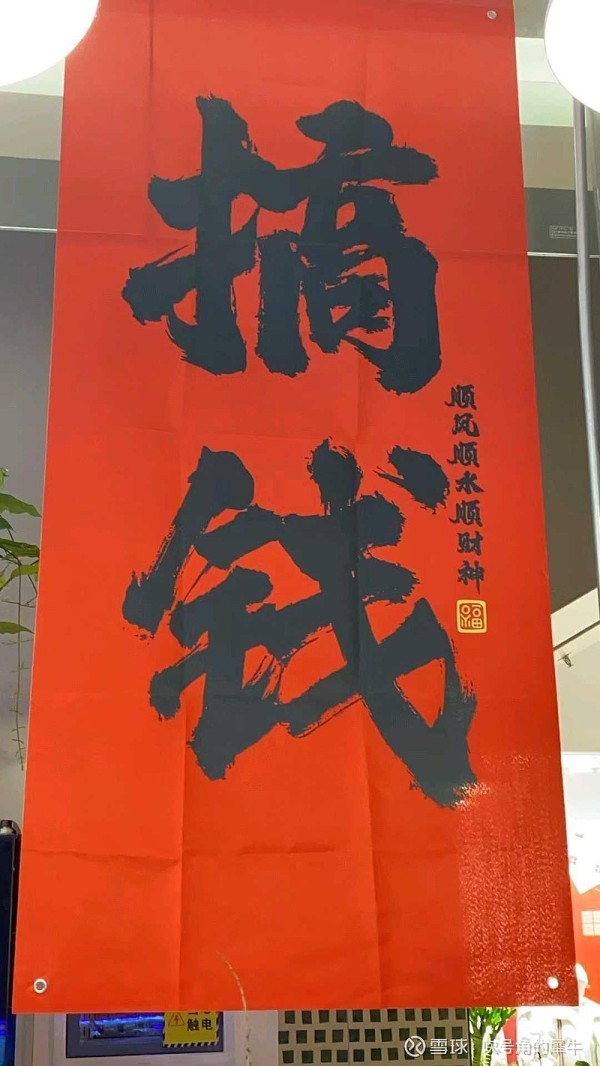 摘
钱
顺风顺水顺财神
福
触电
雪球：吹号角的犀牛